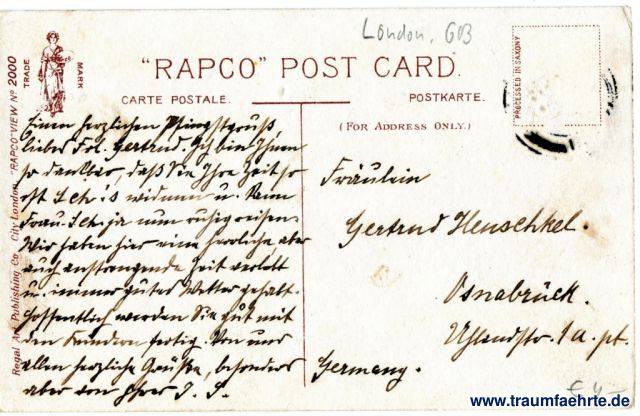 London, GB
"RAPCO" POST CARD.
CARTE POSTALE.
POSTKARTE.
(FOR ADDRESS ONLY.)
PROCESSED IN SAXONY
TRADE MARK
Regal Art Publishing Co., City London, "RAPCO" VIEW Nº 2000
Einen herzlichen Pfingstgruß,
liebes Frl. Gertrud. Ich bin Ihnen
so dankbar, daß Sie Ihre Zeit so
oft Sch's widmen u. kann
Frau Sch. ja nun ruhig reisen.
Wir haben hier eine herrliche aber
auch anstrengende Zeit verlebt
u. immer gutes Wetter gehabt.
Hoffentlich werden Sie gut mit
den Kindern fertig. Von uns
allen herzliche Grüße, besonders
aber von Ihrer J. S.
Fräulein
Gertrud Heuschkel.
Osnabrück.
Uhlandstr. 1a. pt.
Germany.
€ 4,-
www.traumfaehrte.de